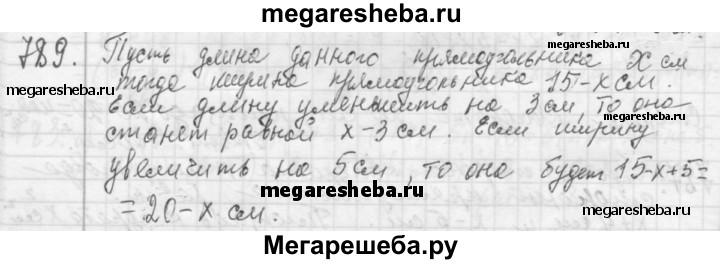 megaresheba.ru
789. Пусть длина данного прямоугольника x см
megaresheba.ru
Тогда ширина прямоугольника 15-x см.
megaresheba.ru
Если длину уменьшить на 3 см, то она
станет равной x-3 см. Если ширину
увеличить на 5 см, то она будет 15-x+5=
megaresheba.ru
= 20-x см.
megaresheba.ru
Мегарешеба.ру